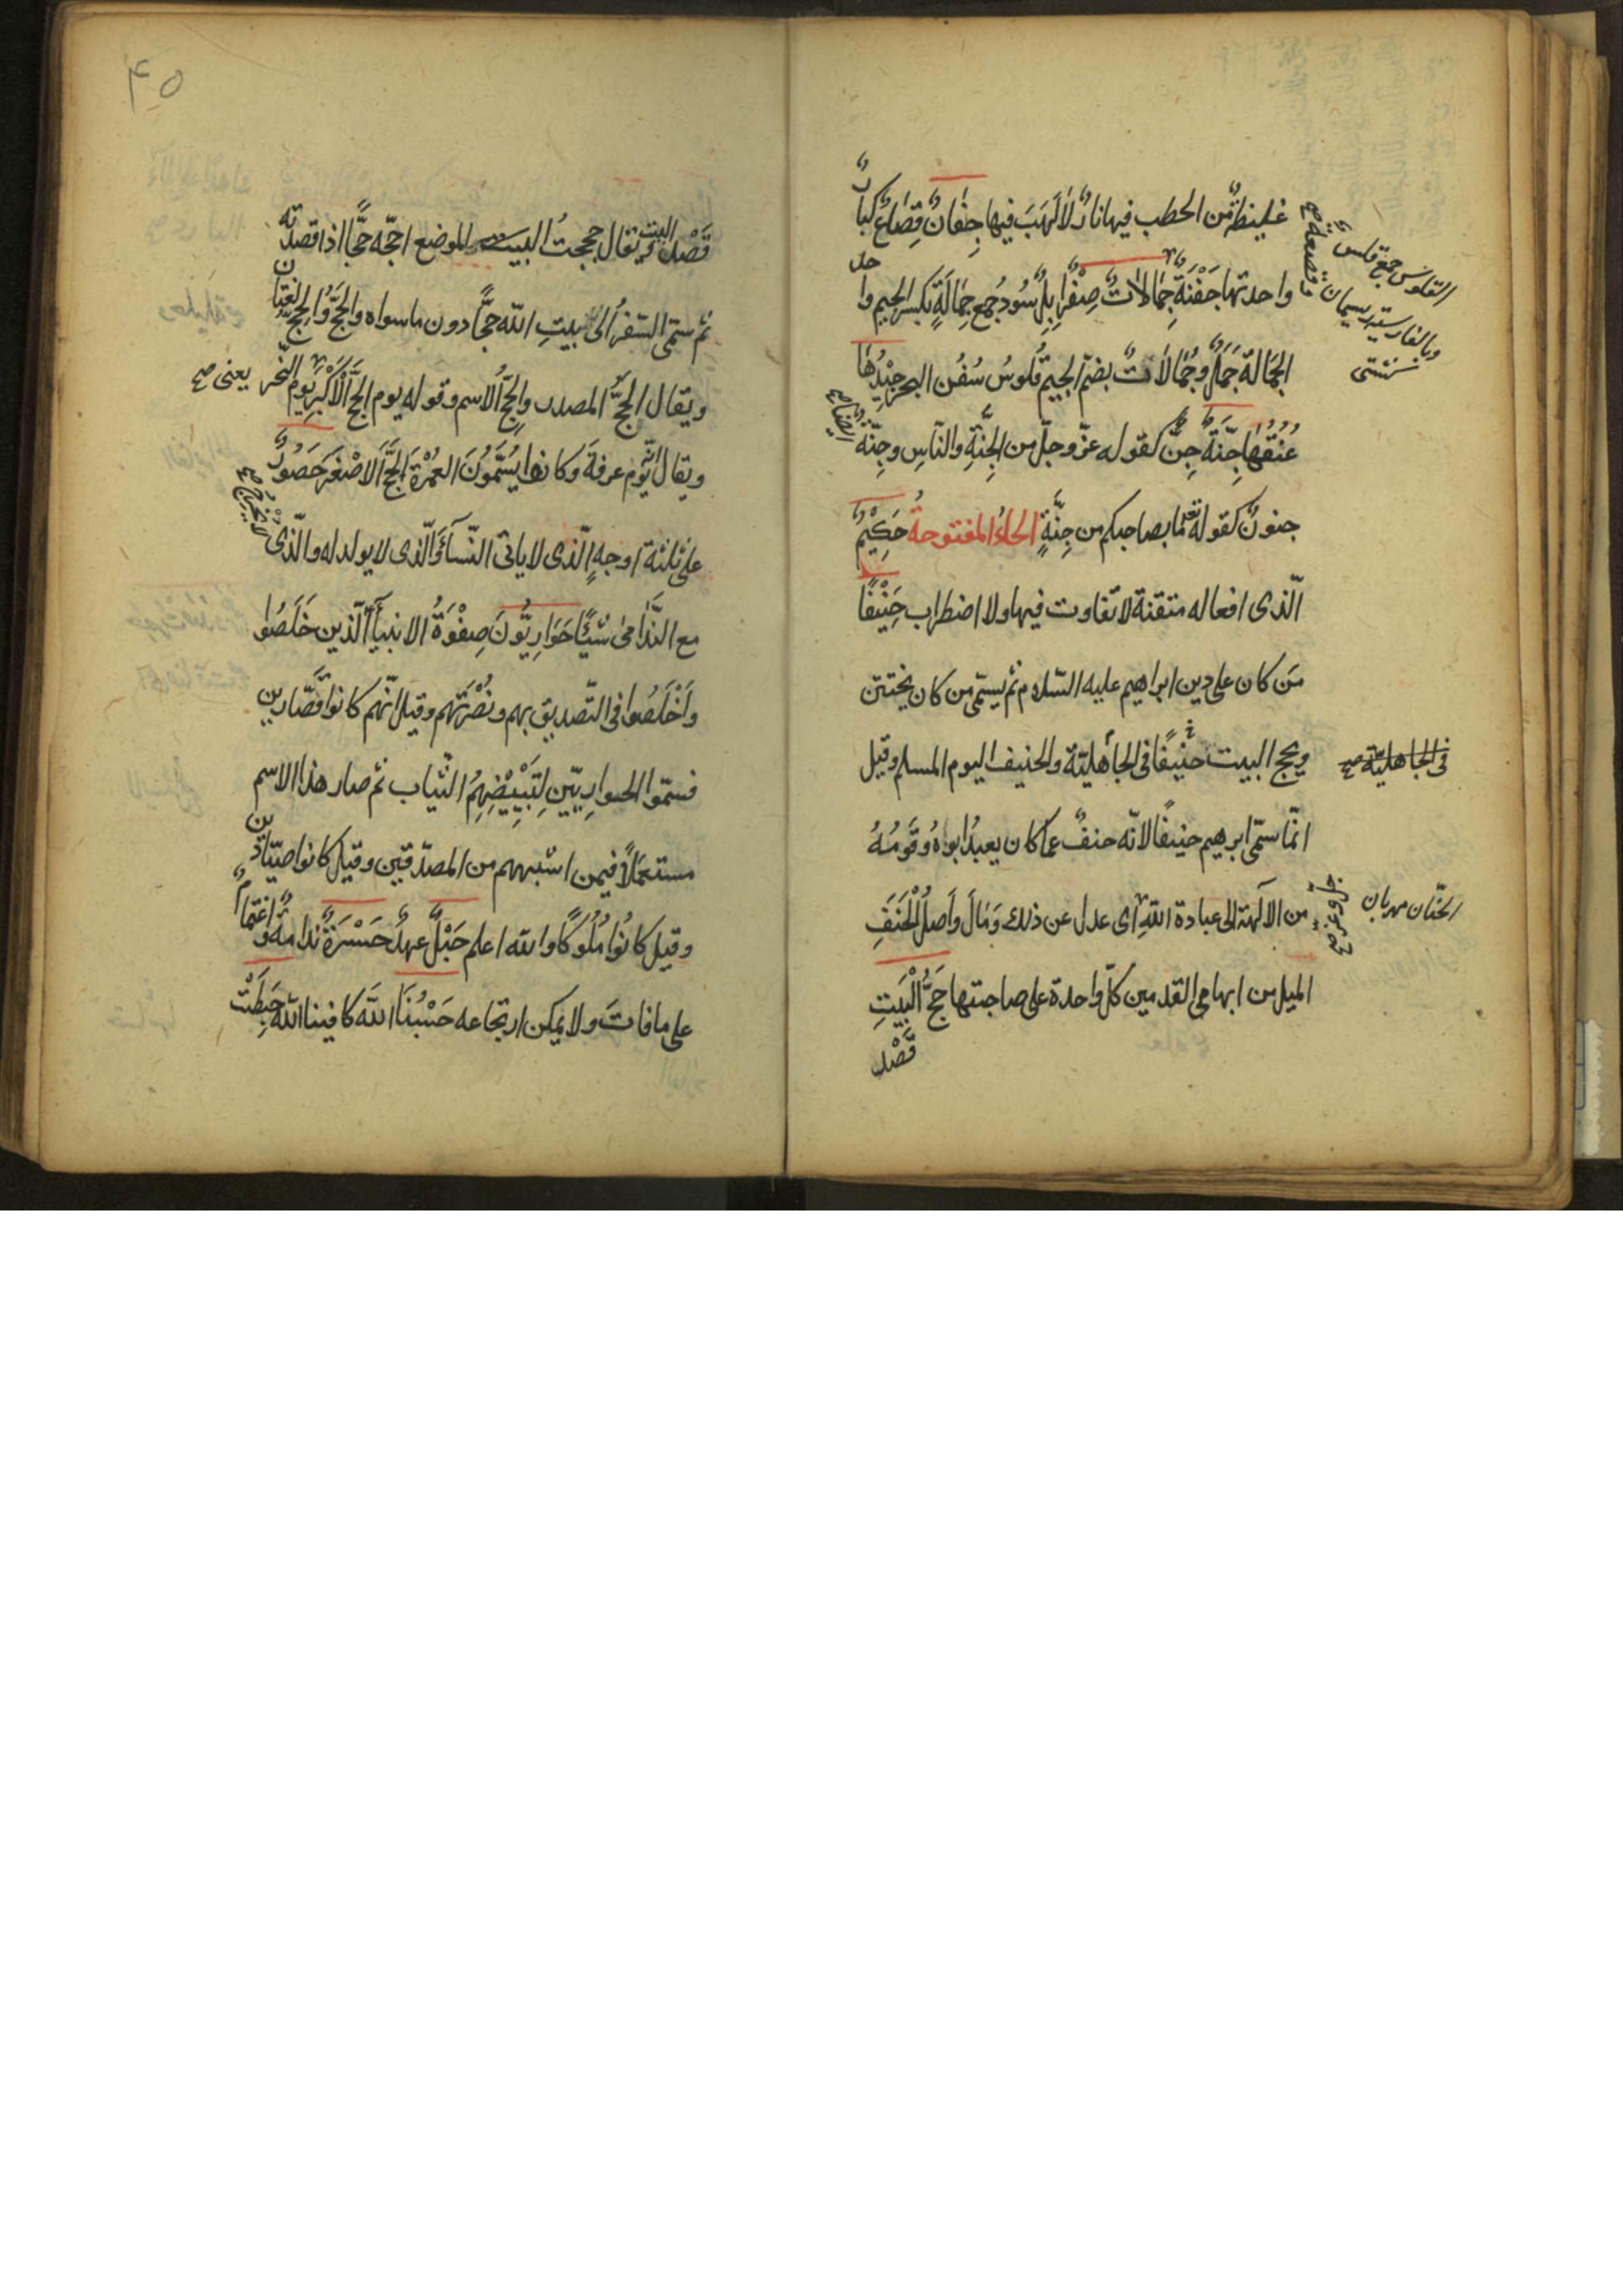 غليظةٌ من الحطب فيها نارٌ لا لَهَبَ فيها جِفَانٌ قِصَاعٌ كبارٌ
واحدتها جَفْنَةٌ جِمَالاتٌ صِفْرٌ ابِلٌ سُودٌ جمع جِمَالَةٍ بكسر الجيم واحد
الجِمَالة جَمَلٌ وجُمَالاَتٌ بضمّ الجيم قُلوسُ سُفُن البحر جِيْدُهَا
عُنُقُهَا جِنَّةٌ جِنٌّ كقوله عزّ وجلّ من الجِنَّةِ والنّاسِ وجِنّة
ايضا صح
جنونٌ كقوله تعالى ما بصاحبكم من جِنَّةٍ الحاءُ المفتوحةُ حَكِيْمٌ
الّذى افعاله متقنة لا تفاوت فيها ولا اضطراب حَنِيْفًا
مَن كان على دين ابراهيم عليه السّلام ثم يسمّى من كان يختتن
ويحج البيت حنيفًا فى الجاهليّة والحنيف اليوم المسلم وقيل
انّما سمّى ابرهيم حنيفًا لانّه حنفٌ عمّا كان يعبدُ ابواهُ وقَومُهُ
من الآلهة الى عبادة اللّهِ اى عدل عن ذلك وَمَالَ وأَصلُ الْحَنَفِ
الميل من ابهامى القدمين كلّ واحدة على صاحبتها حَجَّ الْبَيْتِ
قَصْد
القلوس جمع قلس
وبالفارسية ريسمان
كشتى
قصعة صح
فى الجاهليّة صح
الحنّان مهربان
عزّ وجلّ صح
۴٥
قَصْد البيت ويقال حججتُ الموضع احجّه حجًّا اذا قصدته
ثم سمّى السّفرُ الى بيتِ اللّه حجًّا دون ما سواه والحَجُّ والحِجُّ لغتان
ويقال الحَجُّ المصدر والحِجُّ الاسم وقوله يوم الحَجِّ الْاَكْبَرِ يوم النّحر
يعنى صح
ويقال يوم عرفةَ وكانوا يُسَمّونَ العُمْرَةَ الحَجَّ الاصْغَرَ حَصُورٌ
على ثلثة اوجهٍ الّذى لا يأتى النّسآءَ والّذى لا يولد له والّذى
لا يُخْرِجُ صح
مع النَّدَامىٰ شيئًا حَوَارِيُّونَ صِفْوَةُ الانبيآءِ الّذين خَلَصُوا
وَاَخْلَصُوا فى التّصديق بهم ونُصْرَتِهم وقيل انّهم كانوا قَصَّارين
فسمّوا الحواريّين لِتَبْيِيْضِهِمُ الثّياب ثم صار هذا الاسم
مستعملاً فيمن اشبههم من المصدّقين وقيل كانوا صيّادين
وقيل كانُوا مُلُوكًا واللّه اعلم حَبْلٌ عهدٌ حَسْرَةٌ ندامةٌ واغتمامٌ
على ما فاتَ ولا يمكن ارتجاعه حَسْبُنَا اللّهَ كافينا اللّه حَبِطَتْ